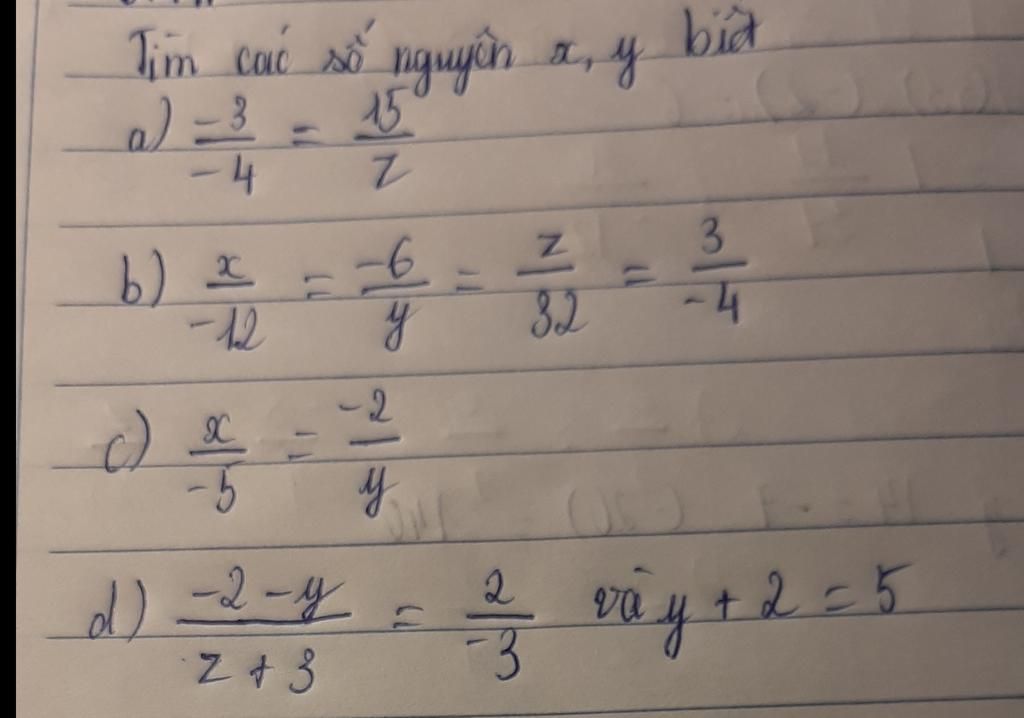 Tìm các số nguyên x, y biết
a) -3/-4 = 15/z
b) x/-12 = -6/y = z/32 = 3/-4
c) x/-5 = -2/y
d) -2-y/z+3 = 2/-3 và y + 2 = 5